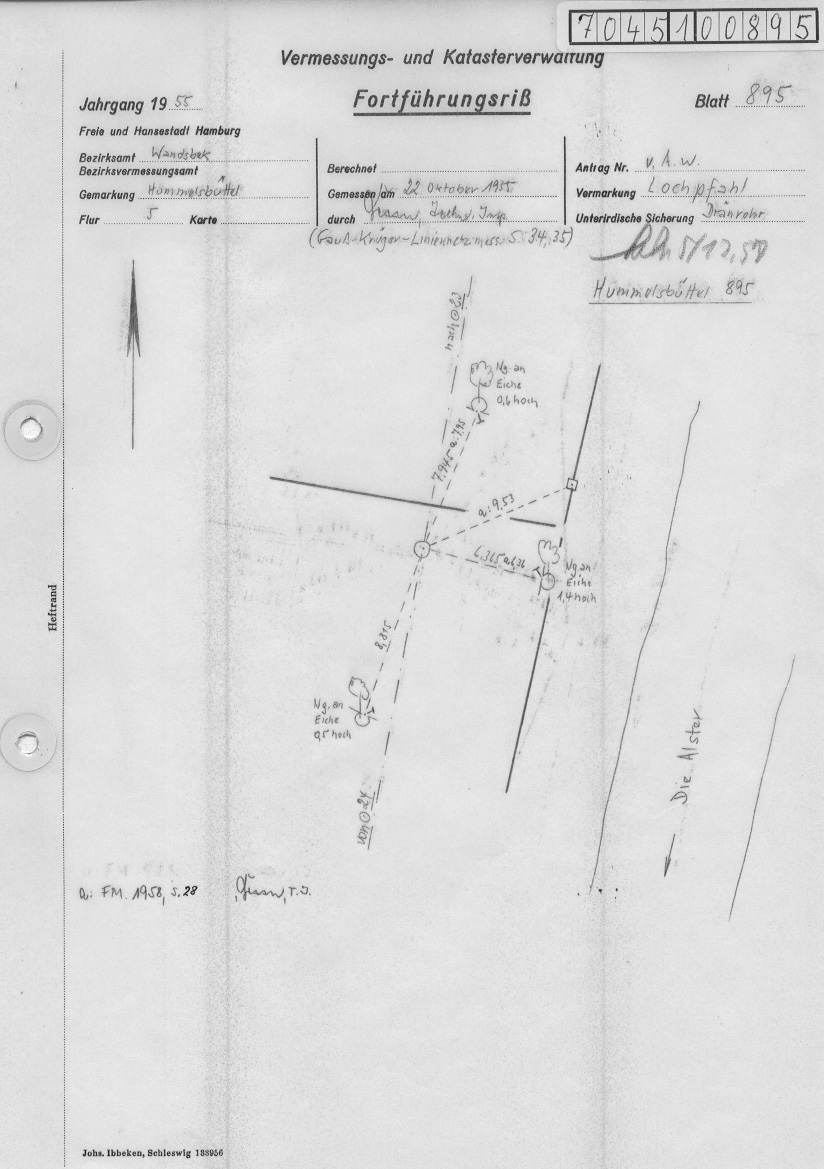 7045100895
Vermessungs- und Katasterverwaltung
Jahrgang 19 55
Fortführungsriß
Blatt 895
Freie und Hansestadt Hamburg
Bezirksamt Wandsbek
Bezirksvermessungsamt
Gemarkung Hummelsbüttel
Flur 5 Karte
Berechnet
Gemessen am 22 Oktober 1955
durch
(Gauß-Krüger-Liniennetzmess. S. 34,35)
Antrag Nr. v. A. W.
Vermarkung Lochpfahl
Unterirdische Sicherung Dränrohr
Hummelsbüttel 895
nach ⊙ 23
Ng. an
Eiche
0,6 hoch
7.945 a: 7.95
a: 9,53
6,365 a: 6,36
Ng an
Eiche
1,4 hoch
8,815
Ng. an
Eiche
0,5 hoch
von ⊙ 24
Die Alster
Heftrand
a: FM. 1958, S. 28 T. I.
Johs. Ibbeken, Schleswig 188956